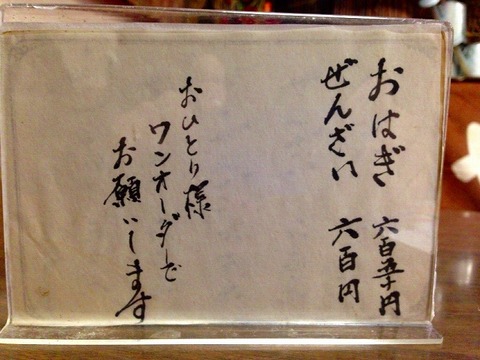 おはぎ 六百五十円
ぜんざい 六百円
おひとり様
ワンオーダーで
お願いします